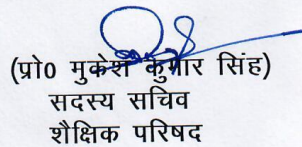 (प्रो0 मुकेश कुमार सिंह)
सदस्य सचिव
शैक्षिक परिषद